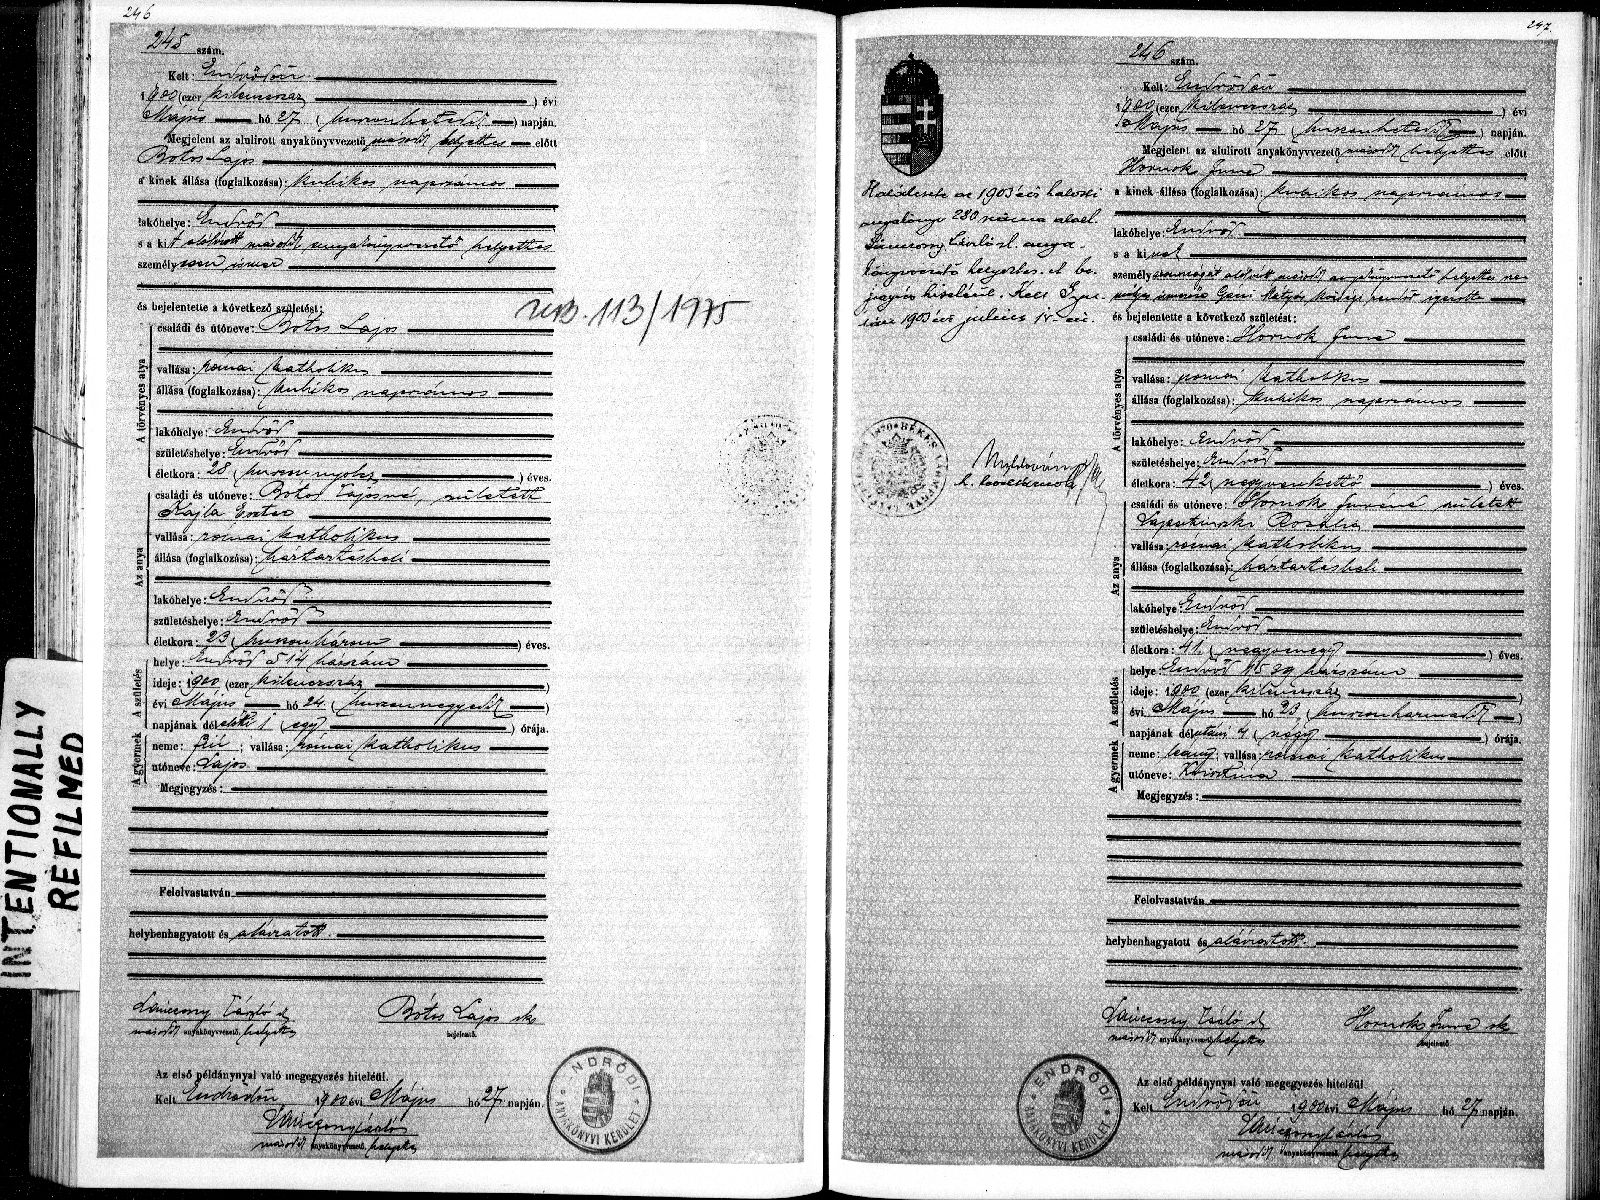 246
245 szám.
Kelt: Endrődön
1900 (ezer kilencszáz) évi
Május hó 27 (huszonhetedik) napján.
Megjelent az alulirott anyakönyvvezető másodt helyettes előtt
Botos Lajos
a kinek állása (foglalkozása): kubikos napszámos
lakóhelye: Endrőd
s a kit alólirott másodt anyakönyvvezető helyettes
személyesen ismer
és bejelentette a következő születést:
A törvényes atya
családi és utóneve: Botos Lajos
vallása: római katholikus
állása (foglalkozása): kubikos napszámos
lakóhelye: Endrőd
születéshelye: Endrőd
életkora: 28 (huszonnyolcz) éves.
Az anya
családi és utóneve: Botos Lajosné, született
Kajla Eszter
vallása: római katholikus
állása (foglalkozása): háztartásbeli
lakóhelye: Endrőd
születéshelye: Endrőd
életkora: 23 (huszonhárom) éves.
A születés
helye: Endrőd 514 házszám
ideje: 1900 (ezer kilencszáz)
évi Május hó 24 (huszonnegyedik)
napjának délelőtti 1 (egy) órája.
A gyermek
neme: fiú; vallása: római katholikus
utóneve: Lajos
Megjegyzés:
Felolvastatván
helybenhagyatott és aláiratott.
Lánczony László s
másodt anyakönyvvezető helyettes
Bótos Lajos sk
bejelentő.
Az első példánynyal való megegyezés hiteléül.
Kelt Endrődön, 1900 évi Május hó 27 napján.
másodt anyakönyvvezető helyettes
ENDRŐDI
ANYAKÖNYVI KERÜLET
113/1975
INTENTIONALLY
REFILMED
247
Halálozás az 1903 évi halotti
anyakönyv 280 száma alatt.
könyvvezető helyettes. E be-
jegyzés hiteléül. Kelt Gyu-
lán 1903 évi július
1870 BÉKÉS
246 szám.
Kelt: Endrődön
1900 (ezer kilenczszáz) évi
Május hó 27 (huszonhetedik) napján.
Megjelent az alulirott anyakönyvvezető másodt helyettes előtt
Hornok Imre
a kinek állása (foglalkozása): kubikos napszámos
lakóhelye: Endrőd
s a kinek
személyazonosságát alólirott másodt anyakönyvvezető helyettes sze-
mélyes ismerőse Géczi Mátyás községi rendőr igazolta
és bejelentette a következő születést:
A törvényes atya
családi és utóneve: Hornok Imre
vallása: római katholikus
állása (foglalkozása): kubikos napszámos
lakóhelye: Endrőd
születéshelye: Endrőd
életkora: 42 (negyvenkettő) éves.
Az anya
családi és utóneve: Hornok Imréné született
Rozália
vallása: római katholikus
állása (foglalkozása): háztartásbeli
lakóhelye: Endrőd
születéshelye: Endrőd
életkora: 41 (negyvenegy) éves.
A születés
helye: Endrőd házszám
ideje: 1900 (ezer kilencszáz)
évi Május hó 23 (huszonharmadik)
napjának délutáni 4 (négy) órája.
A gyermek
neme: leány; vallása: római katholikus
utóneve: Krisztina
Megjegyzés:
Felolvastatván
helybenhagyatott és aláiratott.
Lánczony László s
másodt anyakönyvvezető helyettes
Hornok Imre sk
bejelentő
Az első példánynyal való megegyezés hiteléül.
Kelt Endrődön 1900 évi Május hó 27 napján.
másodt anyakönyvvezető helyettes
ENDRŐDI
ANYAKÖNYVI KERÜLET